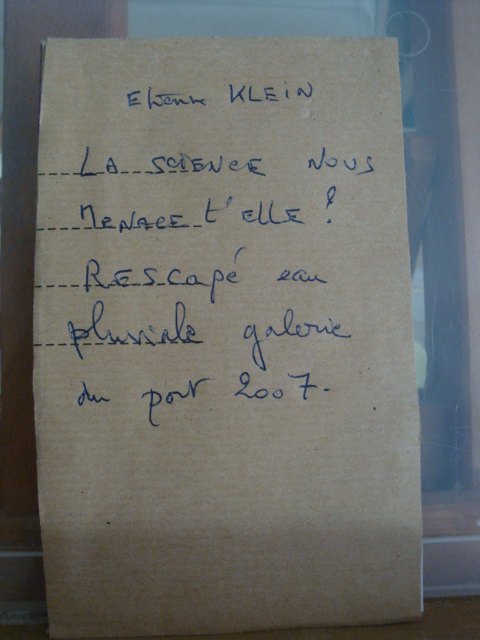 Etienne KLEIN
LA SCIENCE NOUS
MENACE t'elle ?
RESCAPÉ eau
pluviale galerie
du port 2007.